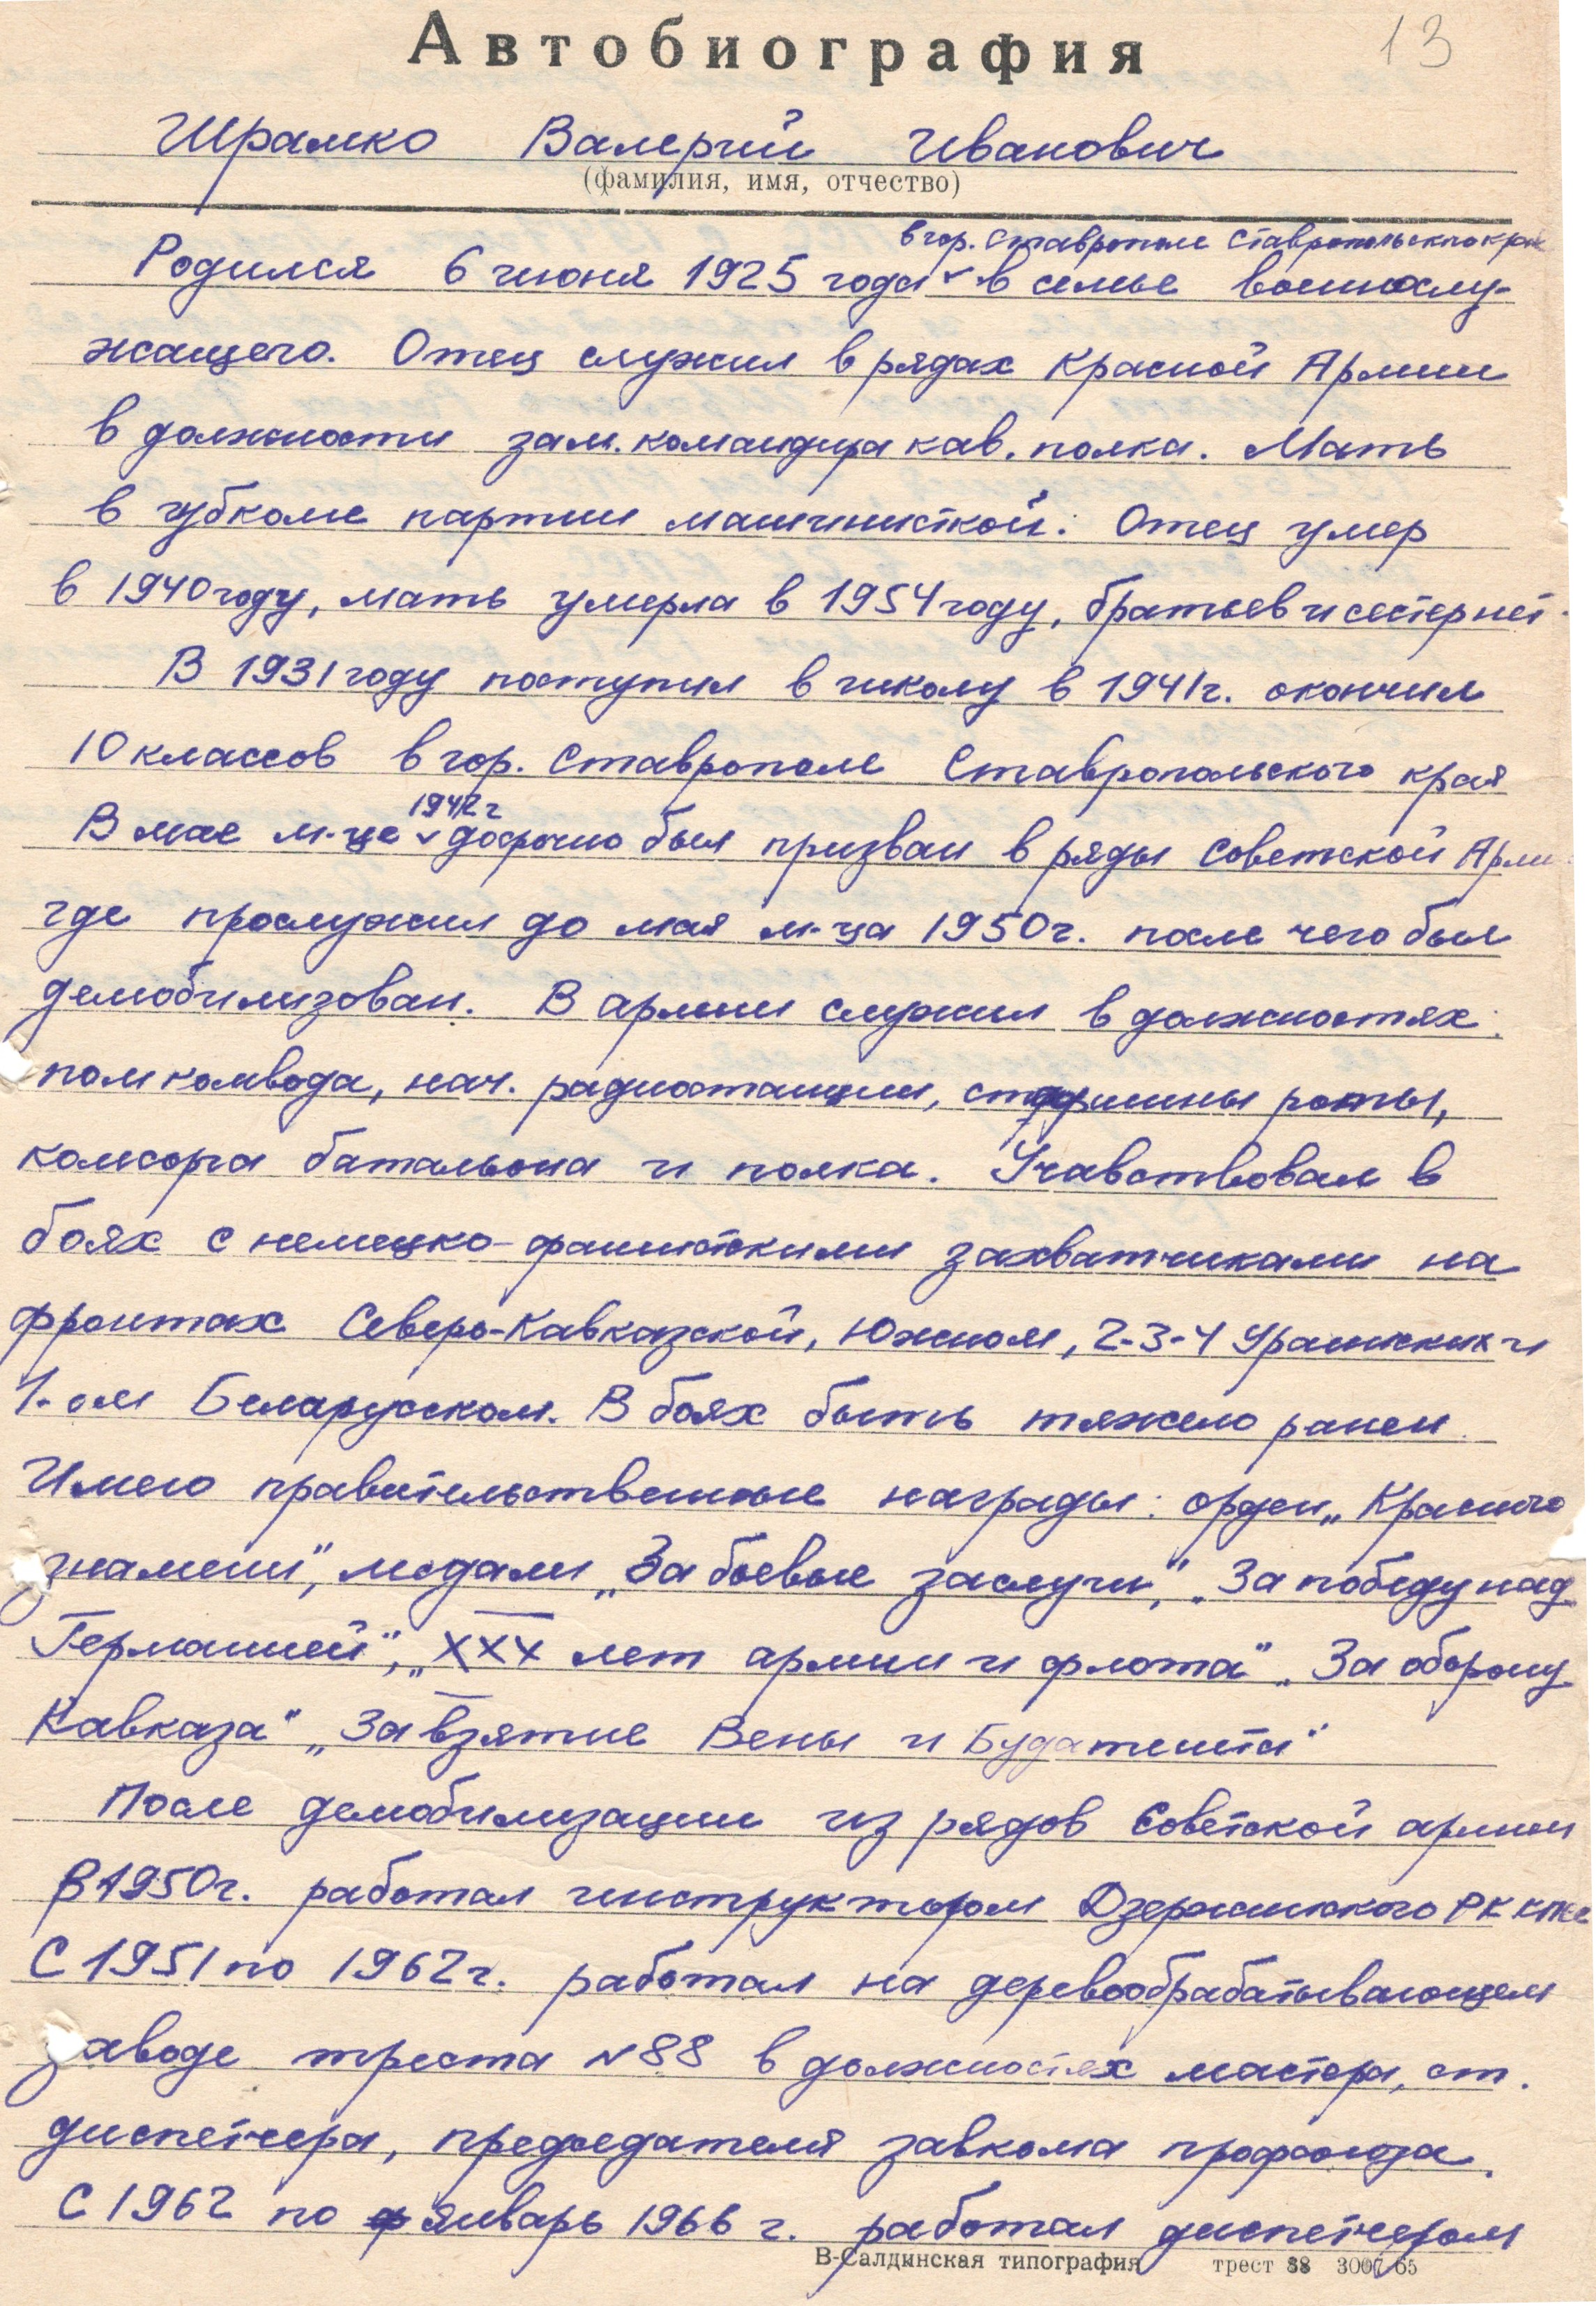 Автобиография
13
Шрамко Валерий Иванович
(фамилия, имя, отчество)
в гор. Ставрополе Ставропольского края
Родился 6 июня 1925 года ᵛ в семье военнослу-
жащего. Отец служил в рядах Красной Армии
в должности зам. командира кав. полка. Мать
в губкоме партии машинисткой. Отец умер
в 1940 году, мать умерла в 1954 году, братьев и сестер нет.
В 1931 году поступил в школу в 1941г. окончил
10 классов в гор. Ставрополе Ставропольского края
1942г
В мае м-це ᵛ досрочно был призван в ряды Советской Арми
где прослужил до мая м-ца 1950г. после чего был
демобилизован. В армии служил в должностях:
пом комвода, нач. радиостанции, старшины роты,
комсорга батальона и полка. Учавствовал в
боях с немецко-фашисткими захватчиками на
фронтах Северо-Кавказской, Южном, 2-3-4 Украинских и
1-ом Беларусском. В боях быть тяжело ранен.
Имею правительственные награды: орден „Красного
знамени", медали „За боевые заслуги", „За победу над
Германией", „XXX лет армии и флота" „За оборону
Кавказа" „За взятие Вены и Будапешта"
После демобилизации из рядов Советской армии
В 1950г. работал инструктором Дзержинского РК КПСС
С 1951 по 1962г. работал на деревообрабатывающем
заводе треста N 88 в должностях мастера, ст.
диспетчера, председателя завкома профсоюза.
С 1962 по январь 1966 г. работал диспетчером
В-Салдинская типография трест 88 3007 65